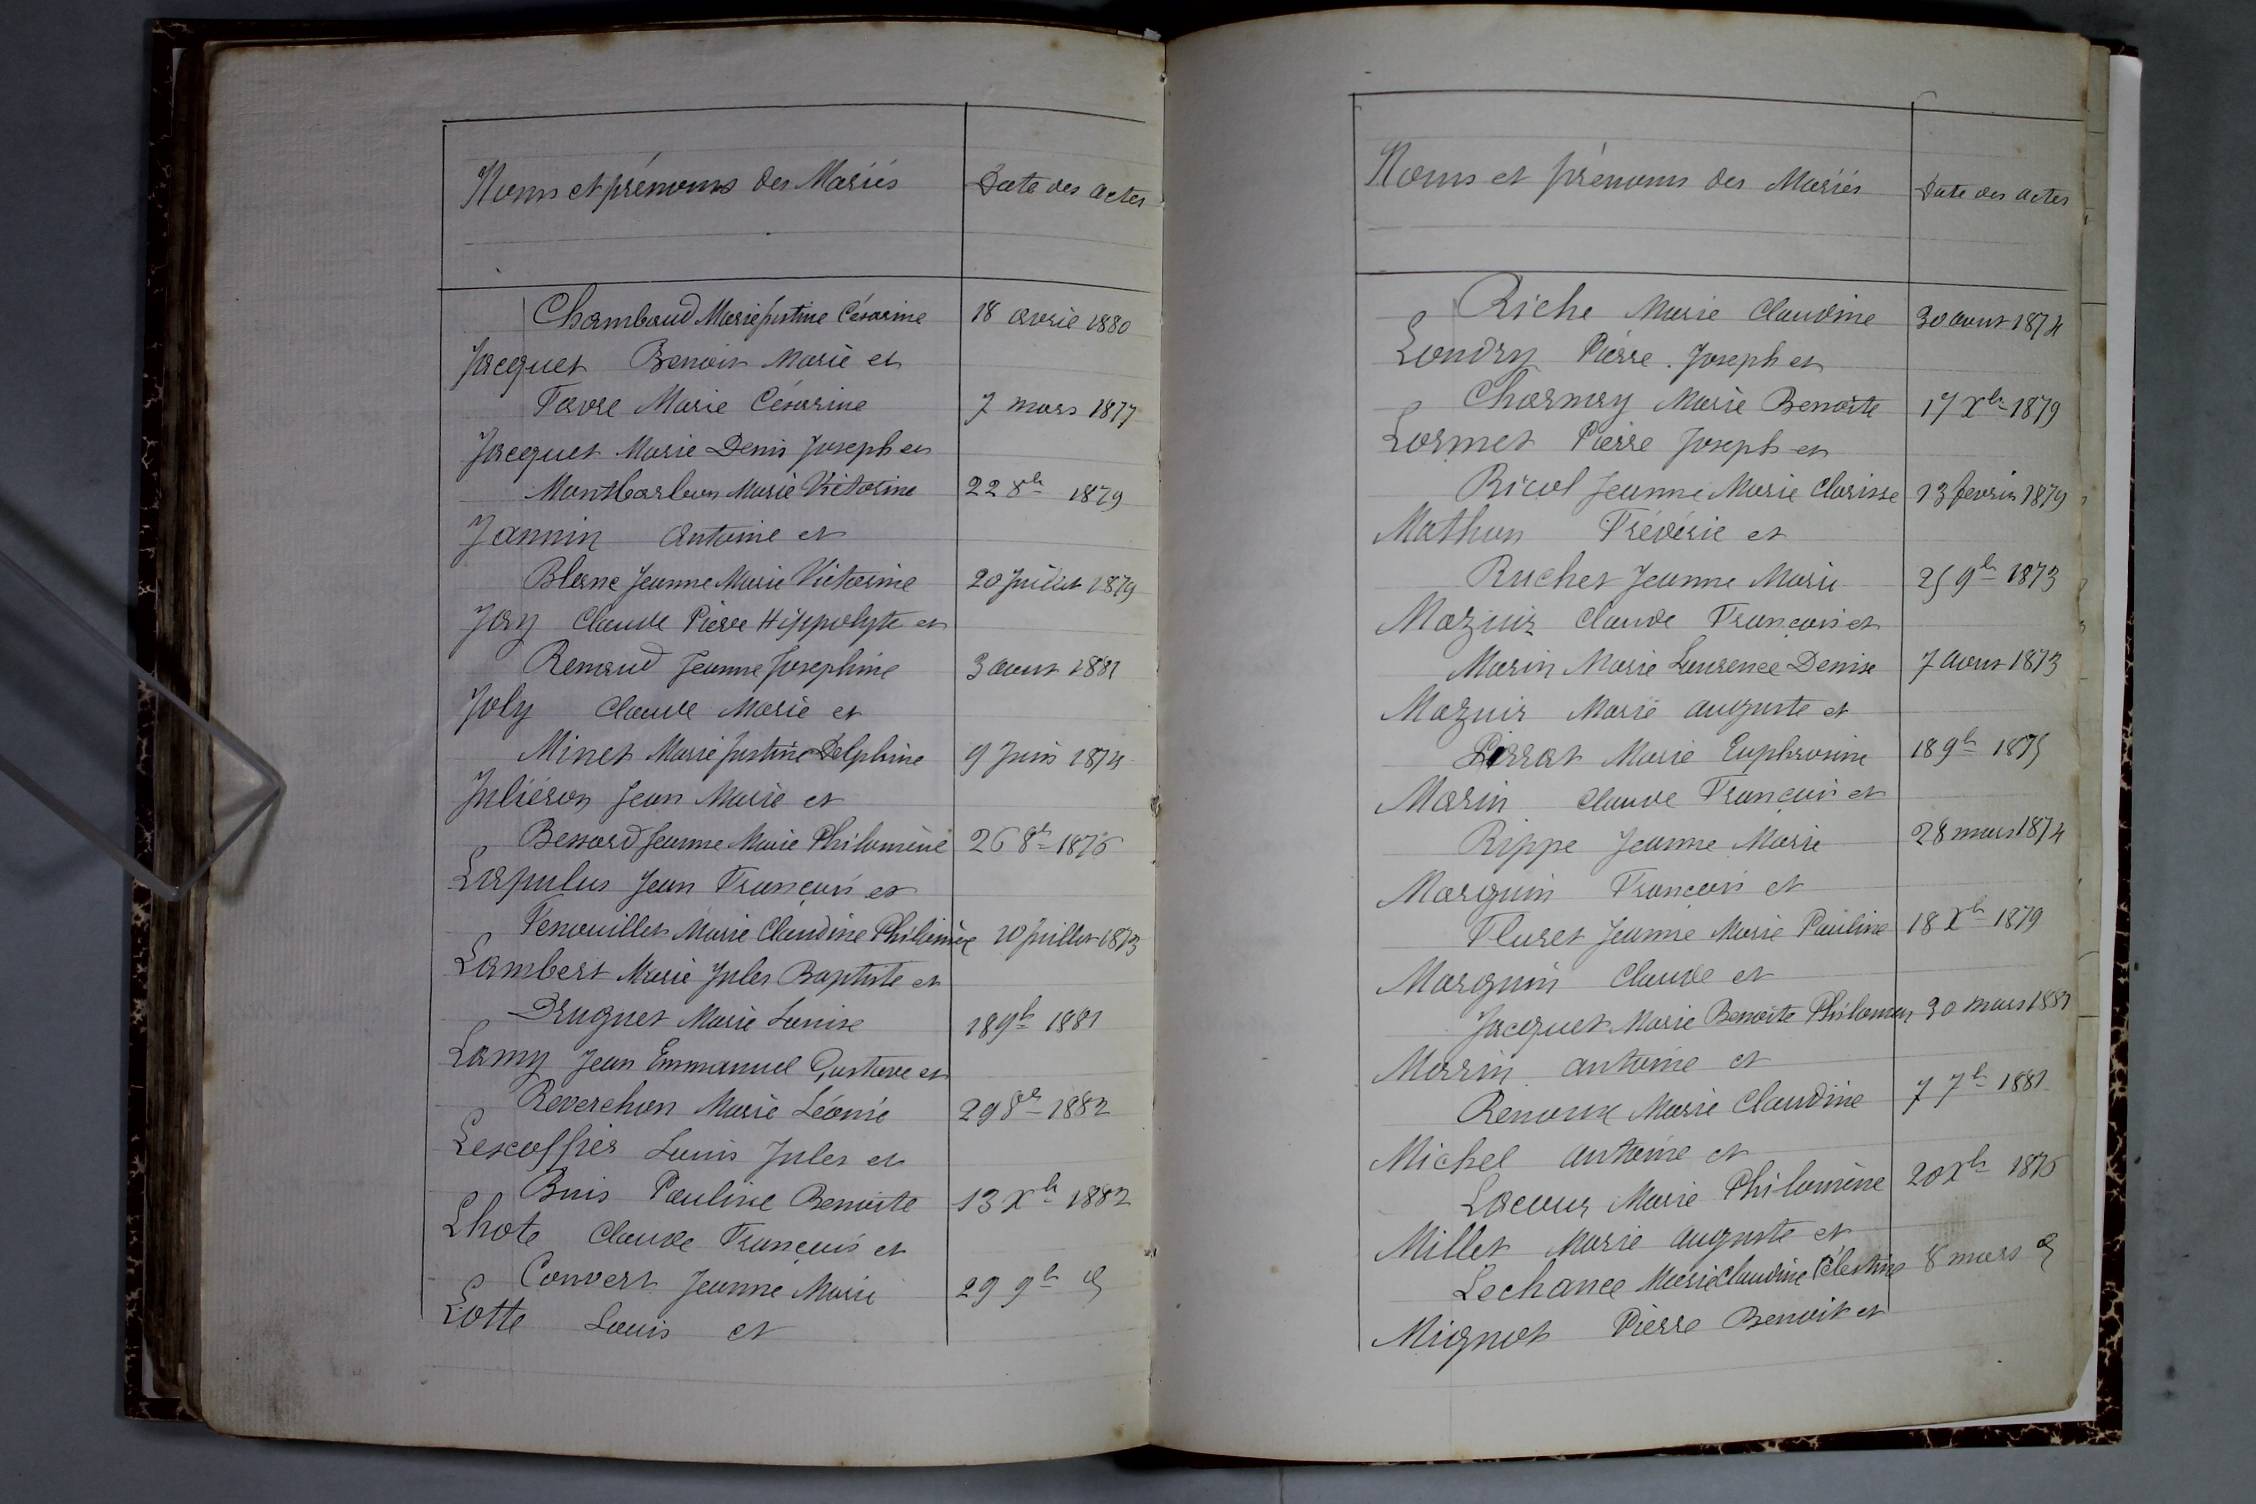 Noms et prénoms des Mariés Date des actes
Chambaud Marie Justine Césarine 18 avril 1880
Jacquet Benoit Marie et
Favre Marie Césarine 7 mars 1877
Jacquet Marie Denis Joseph et
Montbarbon Marie Victorine 22 8bre 1879
Jannin Antoine et
Blanc Jeanne Marie Victorine 20 Juillet 1879
Jay Claude Pierre Hippolyte et
Renaud Jeanne Josephine 3 aout 1881
Joly Claude Marie et
Minet Marie Justine Delphine 9 Juin 1874
Juliéron Jean Marie et
Bessard Jeanne Marie Philomène 26 8bre 1876
Lapalus Jean François et
Fenouillet Marie Claudine Philomène 10 Juillet 1873
Lambert Marie Jules Baptiste et
Druguet Marie Louise 18 9bre 1881
Lamy Jean Emmanuel Gustave et
Reverchon Marie Léonie 29 8bre 1882
Lescoffier Louis Jules et
Buis Pauline Benoite 13 Xbre 1882
Lhote Claude François et
Convert Jeanne Marie 29 9bre
Lotte Louis et
Noms et prénoms des Mariés Date des actes
Riche Marie Claudine 30 aout 1874
Loudry Pierre Joseph et
Charnay Marie Benoite 17 Xbre 1879
Lormet Pierre Joseph et
Ricol Jeanne Marie Clarisse 13 fevrier 1879
Mathon Fréderic et
Ruchet Jeanne Marie 25 9bre 1873
Mazuir Claude François et
Marin Marie Laurence Denise 7 aout 1873
Mazuir Marie auguste et
Pirrat Marie Euphrosine 18 9bre 1875
Marin Claude François et
Rippe Jeanne Marie 28 mars 1874
Marguin François et
Fluret Jeanne Marie Pauline 18 Xbre 1879
Marguin Claude et
Jacquet Marie Benoite Philomen 30 mars 1881
Morrin antoine et
Renoux Marie Claudine 7 7bre 1881
Michel antoine et
Lacour Marie Philomène 20 Xbre 1876
Millet Marie auguste et
Lechance Marie Claudine Célestine 8 mars
Mignot Pierre Benoit et